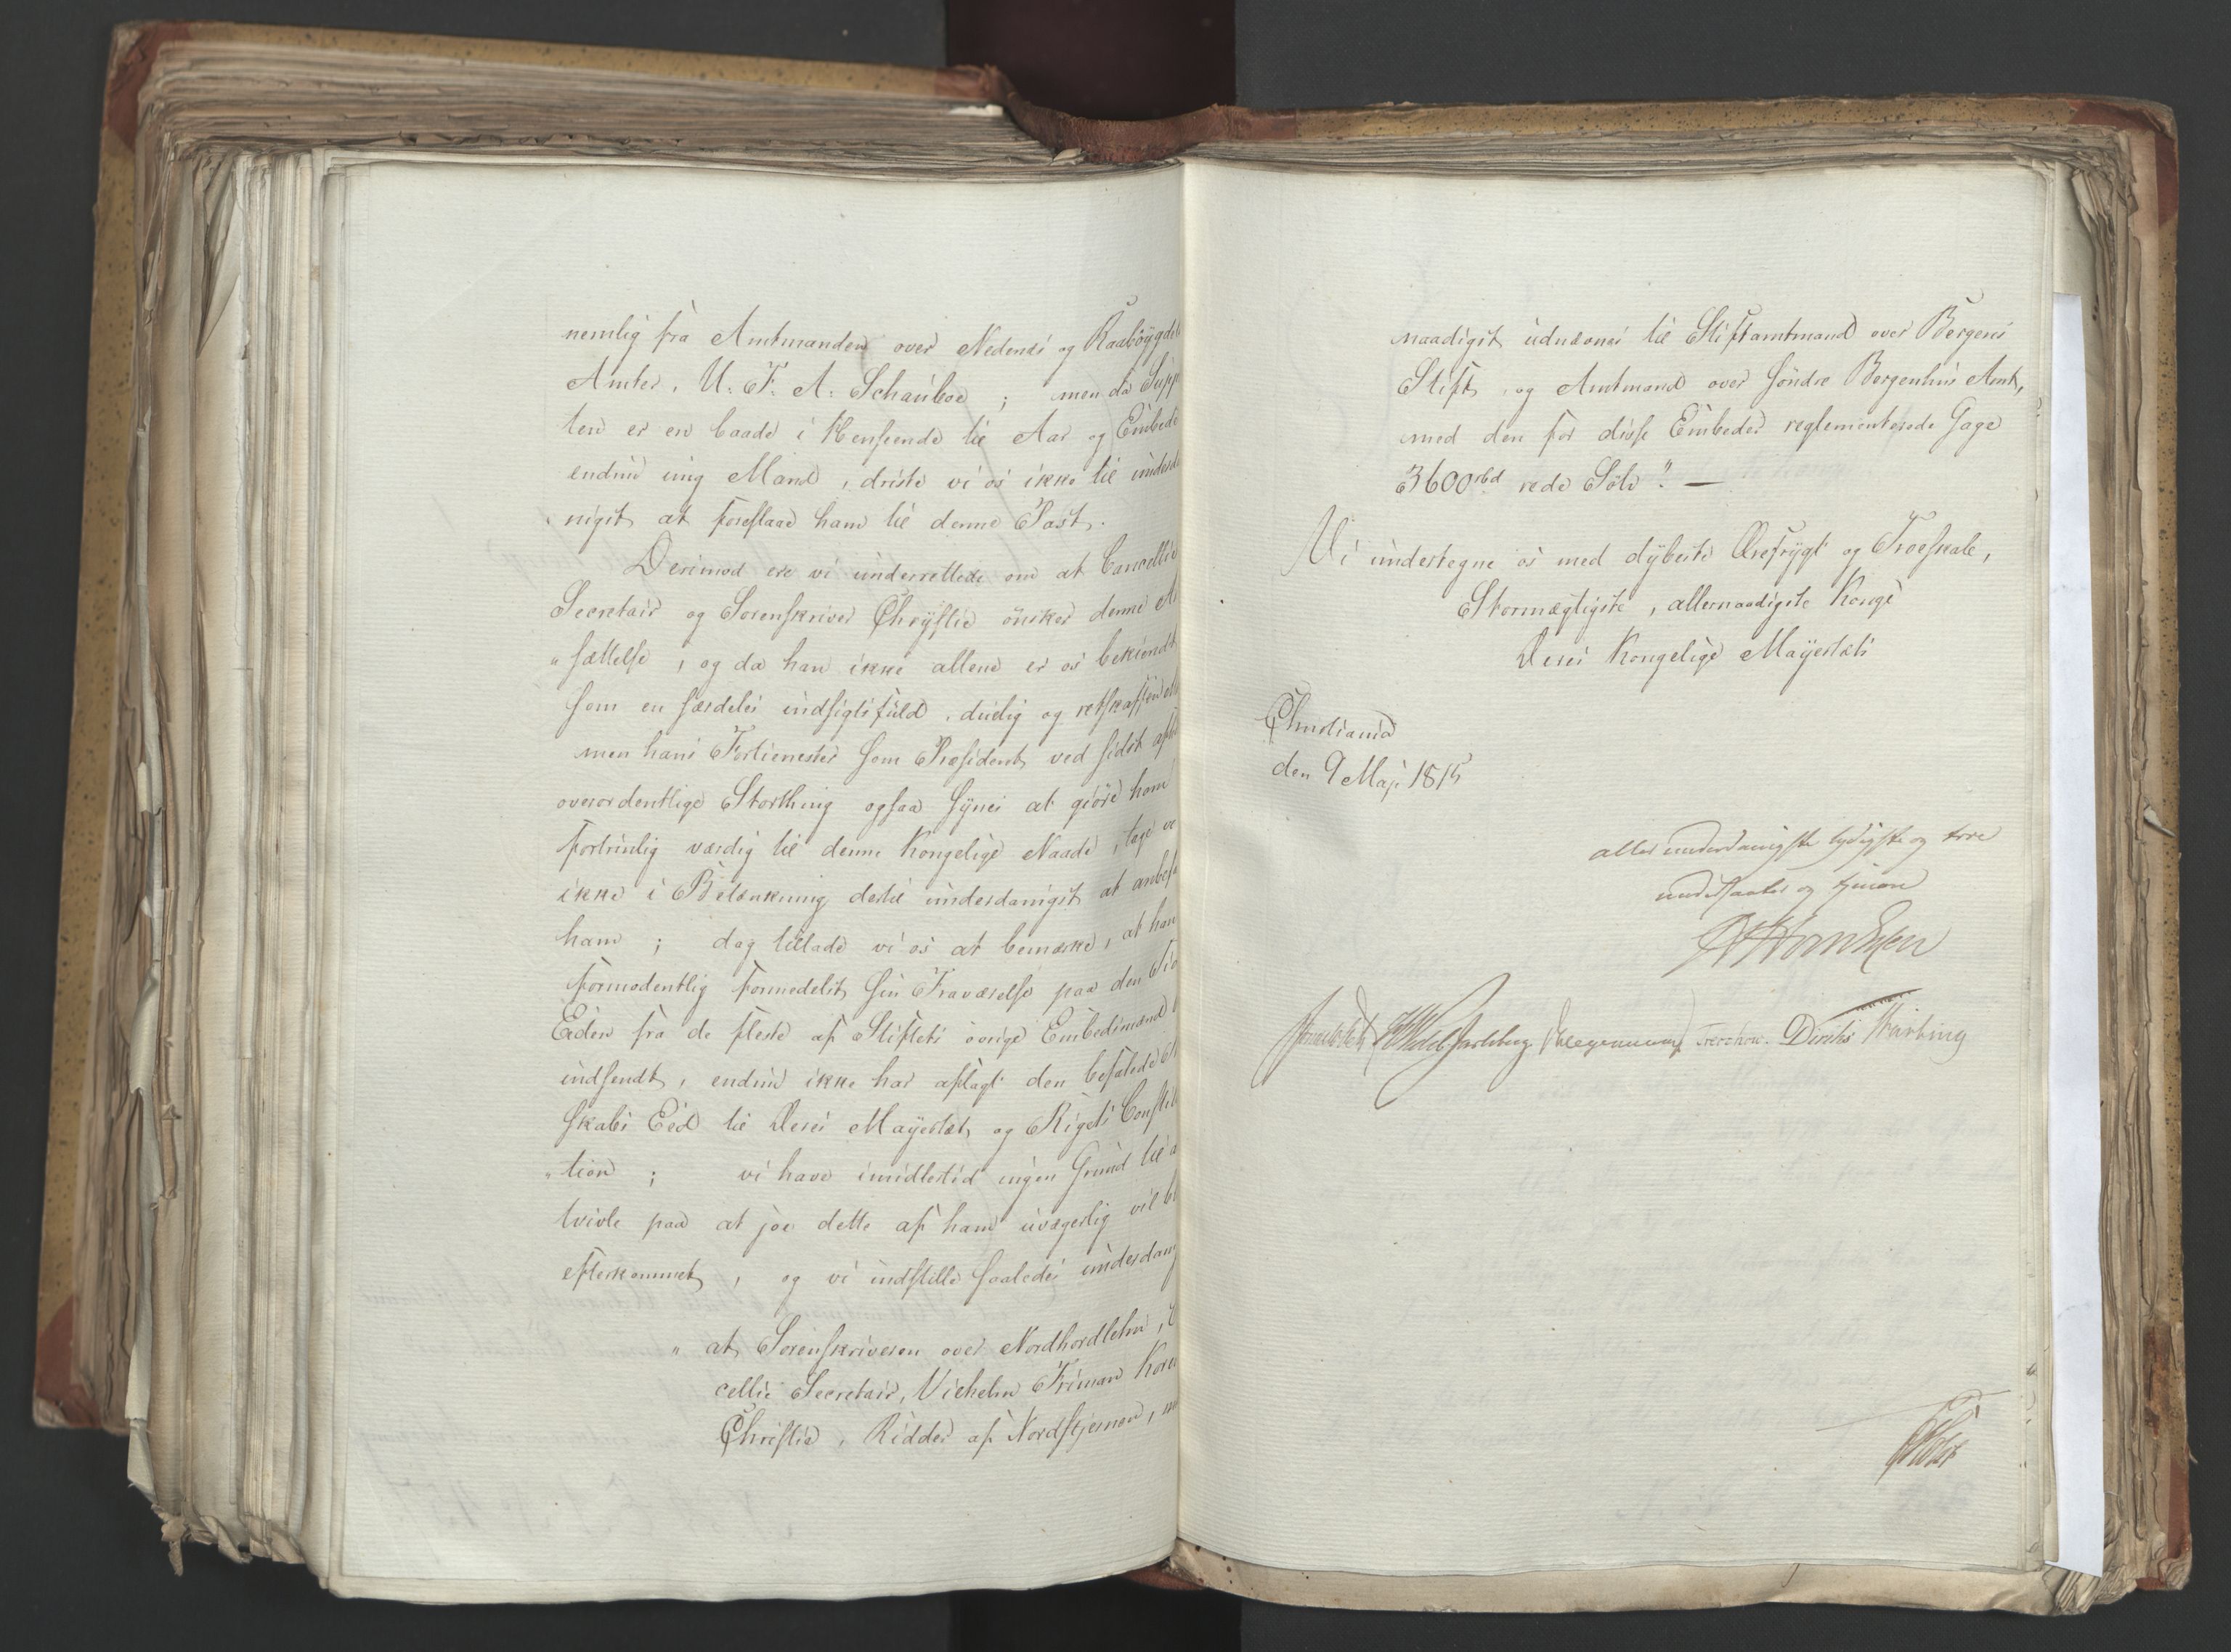 nemlig fra Amtmanden over Nedenæs og Raabøygdel
Amter, U: F: A: Schouboe ; men da Supp
ten er en baade i Henseende til Aar og Embede
endnu ung Mand, driste vi os ikke til underda
nigst at foreslaae ham til denne Post.
Derimod ere vi underrettede om at Cancellie
Secretair og Sorenskriver Chrystie ønsker denne An
"sættelse, og da han ikke allene er os bekiendt
som en særdeles indsigtsfuld, duelig og retskaffen M
men hans Fortienester som Præsident ved sidst afh
overordentlige Storthing ogsaa synes at giøre ham
fortrinlig værdig til denne Kongelige Naade, tage vi
ikke i Betænkning dertil underdanigst at anbefa
ham ; dog tillade vi os at bemærke, at han
formodentlig formedelst sin Fraværelse paa den Tid
Eden fra de fleste af Stiftets øvrige Embedsmænd b
indsendt, endnu ikke har aflagt den befalede
skabs Eed til Deres Mayestæt og Rigets Constitu
"tion ; vi have imidlertid ingen Grund til a
tvivle paa at joe dette af ham uvægerlig vil bl
efterkommet, og vi indstille saaledes underdanig
" at Sorenskriveren over Nordhordlehn, C
cellie Secretair, Vilhelm Friman Kore
Christie, Ridder af Nordstjernen, n
naadigst udnævnes til Stiftamtmand over Bergens
Stift, og Amtmand over søndre Bergenhus Amt,
med den for disse Embeder reglementerede Gage
3600 rbd rede Sølv". —
Vi undertegne os med dybeste Ærefrygt og Troeskab,
Stormægtigste, allernaadigste Konge
Deres Kongelige Mayestæts
Christiania
den 9 Maji 1815
allerunderdanigste lydigste og troe
undersaatter og tjenere
Sommerfeldt HWedel Jarlsberg Hegermann Treschow. Diriks Harbing
Holst